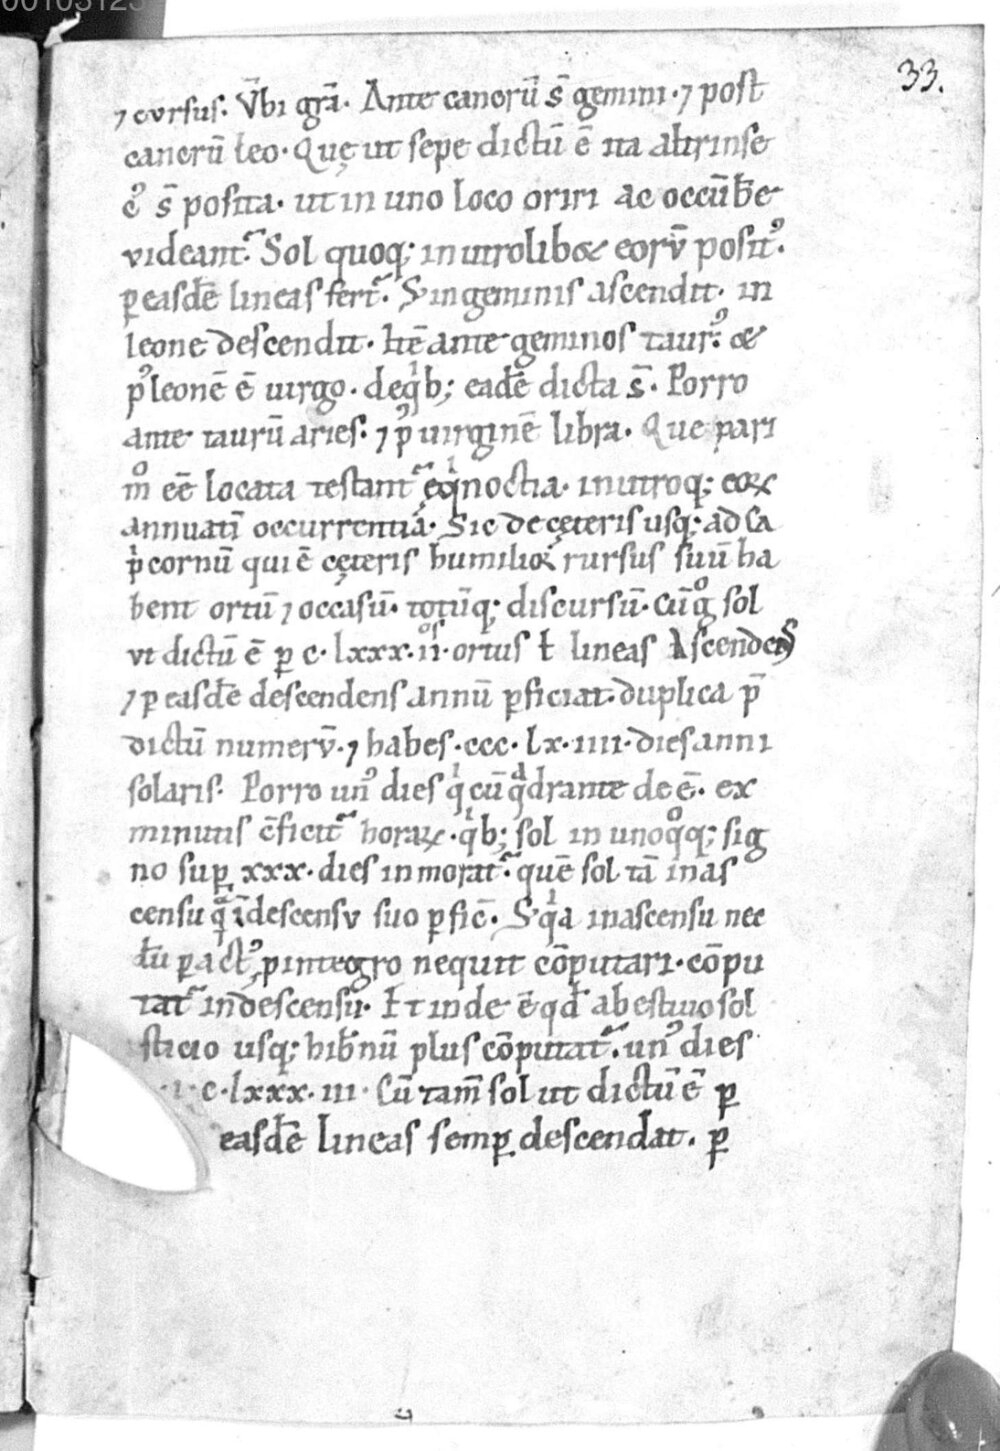 33.
⁊ cursus. Vbi grā. Ante cancrū s̄ gemini. ⁊ post
cancrū leo. Quę ut sepe dictū ē ita altrinse
c᾿ s̄ posita. ut in uno loco oriri ac occūbe
videant᷑. Sol quoq; in utrolibet eorū posit᾿.
ꝑ easdē lineas fert᷑. S; in geminis ascendit. in
leone descendit. Itē ante geminos taur᾿. et
p᾿ leonē ē uirgo. de qⁱb; eadē dicta s̄. Porro
ante taurū aries. ⁊ p᾿ uirginē libra. Que pari
mº eē locata testant᷑ ęqⁱnoctia. in utroq; eoꝝ
annuatī occurrentia. Sic de cęteris usq; ad ca
pⁱcornū qui ē cęteris humilior. rursus suū ha
bent ortū ⁊ occasū. totūq; discursū. Cū g° sol
vt dictū ē ꝑ c. lxxx. ii. ortus ł lineas Ascendens
⁊ ꝑ easdē descendens annū ꝑficiat. duplica p̄
dictū numerū. ⁊ habes. ccc. lx. iiii. dies anni
solaris. Porro un᾿ dies qⁱ cū qᵃdrante de ē. ex
minutis c̄ficit᷑ horaꝝ. qⁱb; sol in unoqºq; sig
no suꝑ xxx. dies inmorat᷑. quē sol tā in as
censu qᵃ ī descensu suo ꝑfic̄. S; qⁱa in ascensu nec
dū ꝑact᾿, ꝑ integro nequit cōputari. cōpu
tat᷑ in descensu. Et inde ē qđ ab estiuo sol
sticio usq; hib̄nū plus cōputat᷑. un᾿ dies
.i. c. lxxx. iii. Cū tam̄ sol ut dictū ē ꝑ
easdē lineas semꝑ descendat. ꝑ